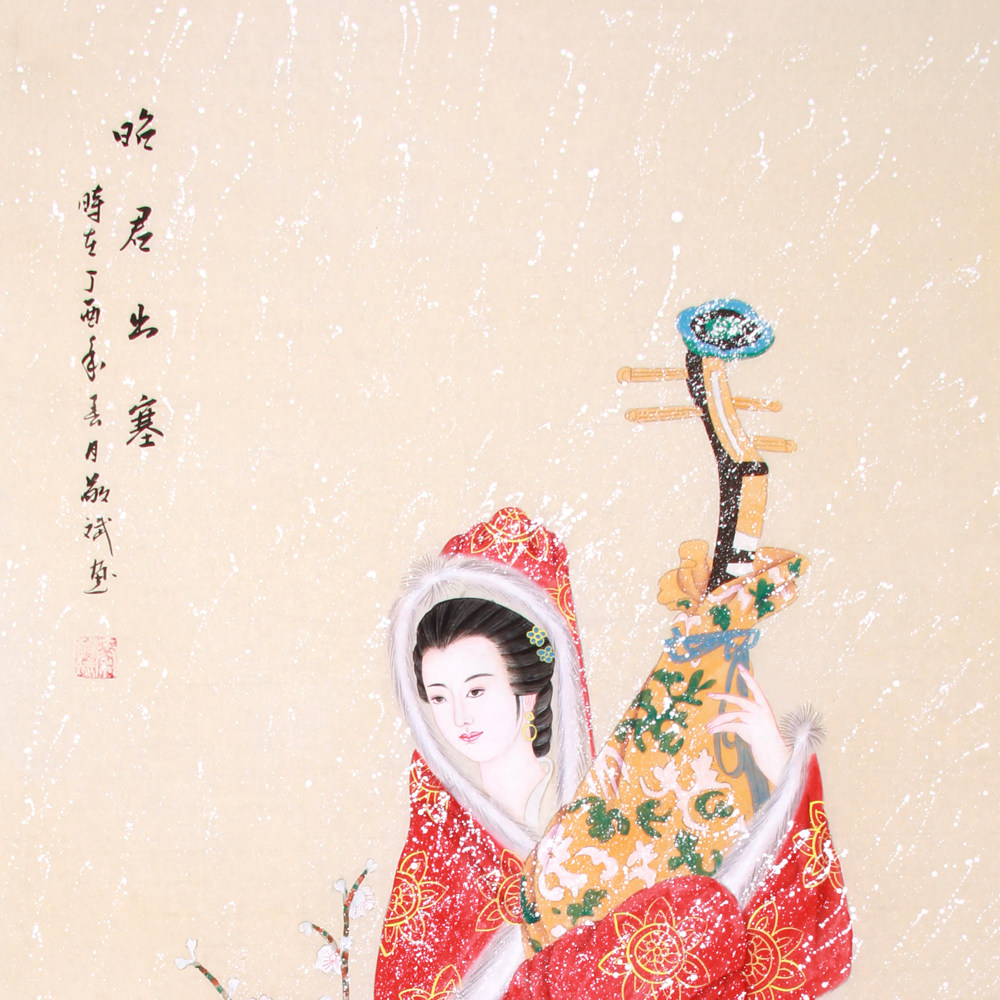 昭君出塞
時在丁酉年春月敬斌画